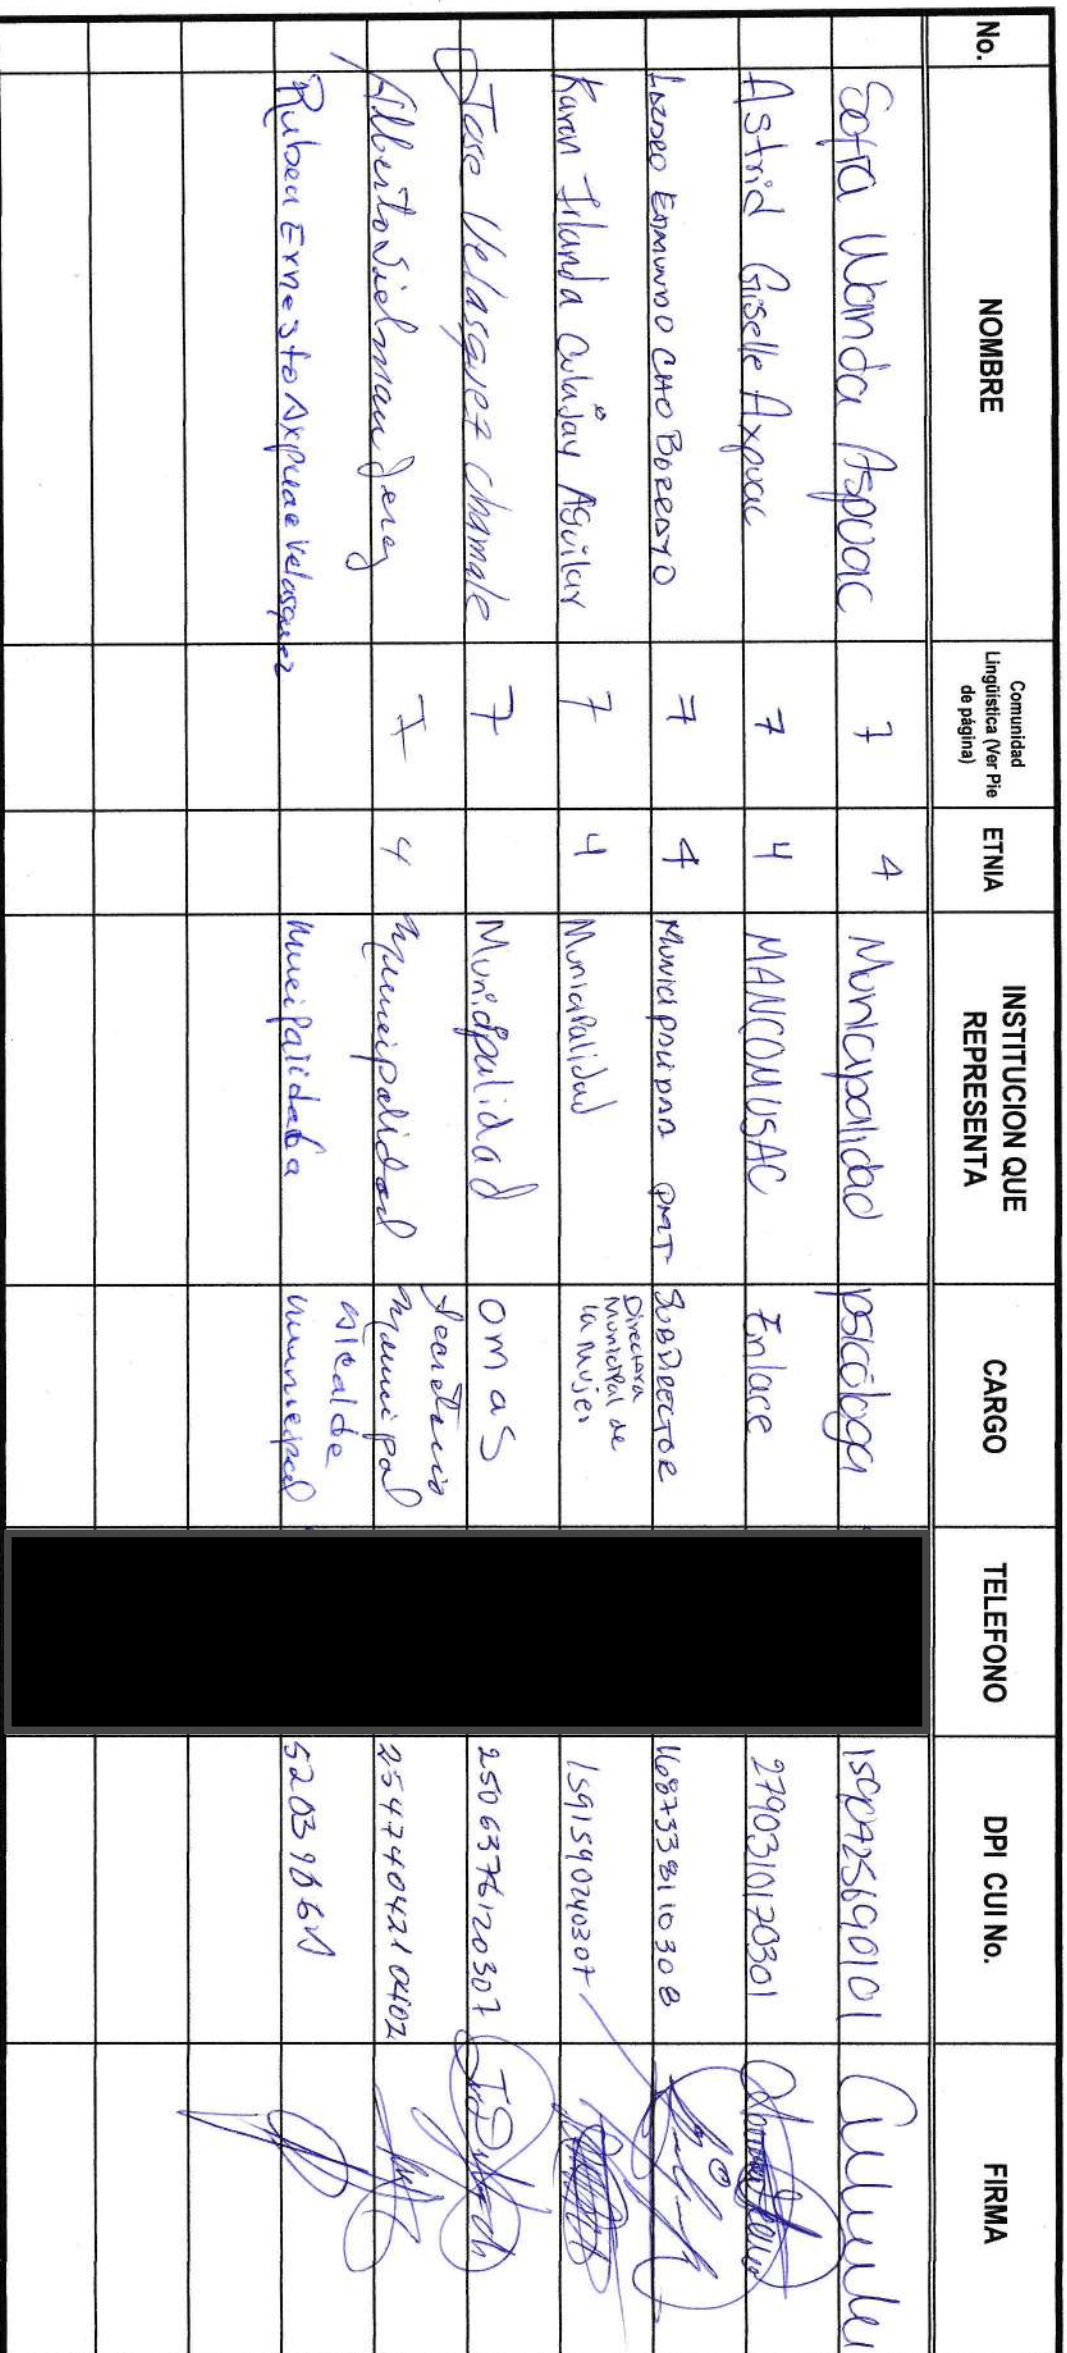 No. NOMBRE Comunidad Lingüistica (Ver Pie de página) ETNIA INSTITUCION QUE REPRESENTA CARGO TELEFONO DPI CUI No. FIRMA
Sofia Wanda Aspuac 7 4 Municipalidad psicóloga
Astrid Giselle Axpuac 7 4 MANCOMUSAC Enlace 2790310170301
EDMUNDO 7 4 Municipalidad PMT SUBDIRECTOR 1687338110308
Karen Culajay Aguilar 7 4 Municipalidad Directora Municipal de la Mujer 1591590240307
Jose Velasquez Chamale 7 Municipalidad Omas 2506376120307
Alberto Sielman Jerez 7 4 Municipalidad Secretario Municipal
Ruben Ernesto Axpuac Velasquez alcalde municipal